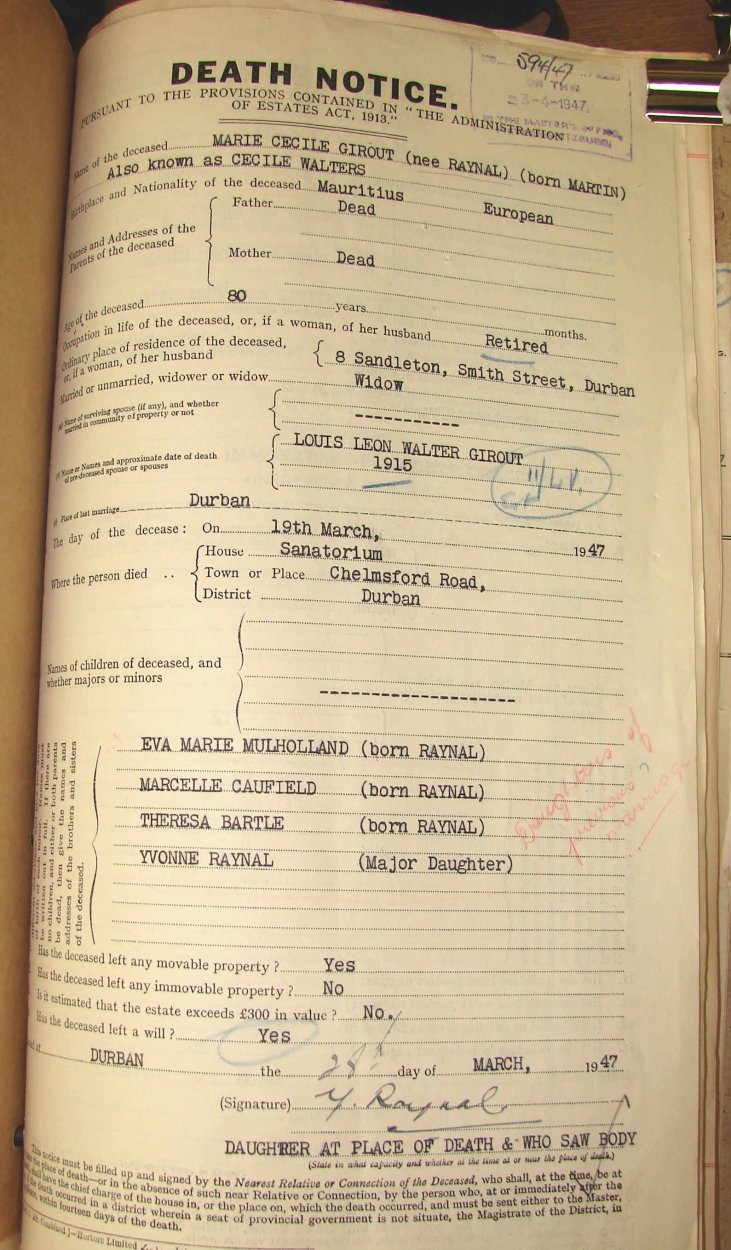 DEATH NOTICE.
594/47
ON THE
23-4-1947.
IN THE MASTER'S OFFICE,
PURSUANT TO THE PROVISIONS CONTAINED IN "THE ADMINISTRATION
OF ESTATES ACT, 1913."
Name of the deceased MARIE CECILE GIROUT (nee RAYNAL) (born MARTIN)
Also known as CECILE WALTERS
Birthplace and Nationality of the deceased Mauritius European
Names and Addresses of the
Parents of the deceased
Father Dead
Mother Dead
Age of the deceased 80 years months.
Occupation in life of the deceased, or, if a woman, of her husband Retired
Ordinary place of residence of the deceased,
or, if a woman, of her husband
8 Sandleton, Smith Street, Durban
Married or unmarried, widower or widow Widow
(a) Name of surviving spouse (if any), and whether
married in community of property or not
------------
(b) Name or Names and approximate date of death
of pre-deceased spouse or spouses
LOUIS LEON WALTER GIROUT
1915
(c) Place of last marriage Durban
The day of the decease: On 19th March, 1947
Where the person died ..
House Sanatorium
Town or Place Chelmsford Road,
District Durban
Names of children of deceased, and
whether majors or minors
----------------------
be written out in full. If there are
no children, and either or both parents
be dead, then give the names and
addresses of the brothers and sisters
of the deceased.
EVA MARIE MULHOLLAND (born RAYNAL)
MARCELLE CAUFIELD (born RAYNAL)
THERESA BARTLE (born RAYNAL)
YVONNE RAYNAL (Major Daughter)
Daughters of
previous ?
marriage
Has the deceased left any movable property ? Yes
Has the deceased left any immovable property ? No
Is it estimated that the estate exceeds £300 in value ? No.
Has the deceased left a will ? Yes
at DURBAN the 28th day of MARCH, 1947
(Signature) Y. Raynal
DAUGHTER AT PLACE OF DEATH & WHO SAW BODY
(State in what capacity and whether at the time at or near the place of death.)
This notice must be filled up and signed by the Nearest Relative or Connection of the Deceased, who shall, at the time, be at
the place of death—or in the absence of such near Relative or Connection, by the person who, at or immediately after the
shall have the chief charge of the house in, or the place on, which the death occurred, and must be sent either to the Master,
the death occurred in a district wherein a seat of provincial government is not situate, the Magistrate of the District, in
within fourteen days of the death.
Hortors Limited